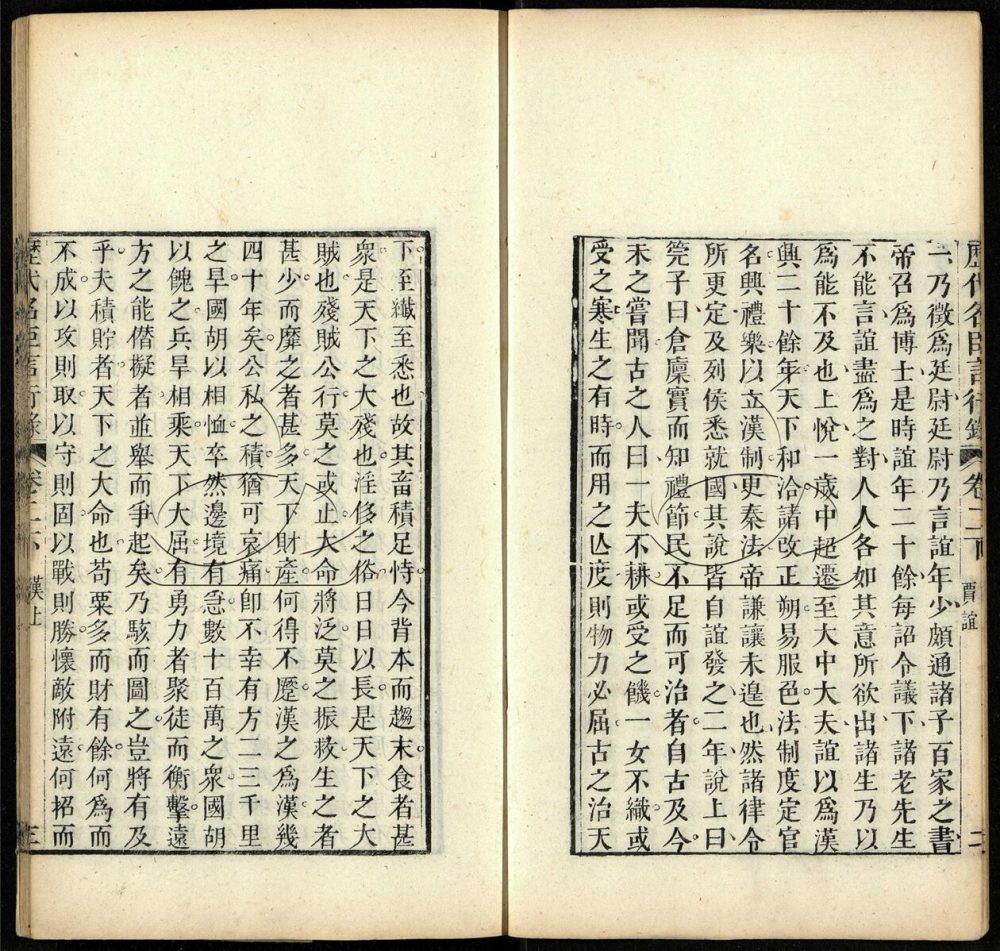 歷代名臣言行錄 卷二 賈誼 二
一乃徵爲廷尉廷尉乃言誼年少頗通諸子百家之書
帝召爲博士是時誼年二十餘每詔令議下諸老先生
不能言誼盡爲之對人人各如其意所欲出諸生乃以
爲能不及也上悅一歲中超遷至大中大夫誼以爲漢
興二十餘年天下和洽諸改正朔易服色法制度定官
名興禮樂以立漢制更秦法帝謙讓未遑也然諸律令
所更定及列侯悉就國其說皆自誼發之二年說上曰
筦子曰倉廩實而知禮節民不足而可治者自古及今
未之嘗聞古之人曰一夫不耕或受之饑一女不織或
受之寒生之有時而用之亾度則物力必屈古之治天
下至纖至悉也故其畜積足恃今背本而趨末食者甚
衆是天下之大殘也淫侈之俗日日以長是天下之大
賊也殘賊公行莫之或止大命將泛莫之振救生之者
甚少而靡之者甚多天下財產何得不蹷漢之爲漢幾
四十年矣公私之積猶可哀痛卽不幸有方二三千里
之旱國胡以相恤卒然邊境有急數十百萬之衆國胡
以餽之兵旱相乘天下大屈有勇力者聚徒而衡擊遠
方之能僭擬者並舉而爭起矣乃駭而圖之豈將有及
乎夫積貯者天下之大命也苟粟多而財有餘何爲而
不成以攻則取以守則固以戰則勝懷敵附遠何招而
歷代名臣言行錄 卷二 漢 三